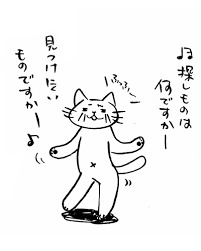 ♫探しものは
何ですかー
見つけにくい
ものですかー♪
ふっふー